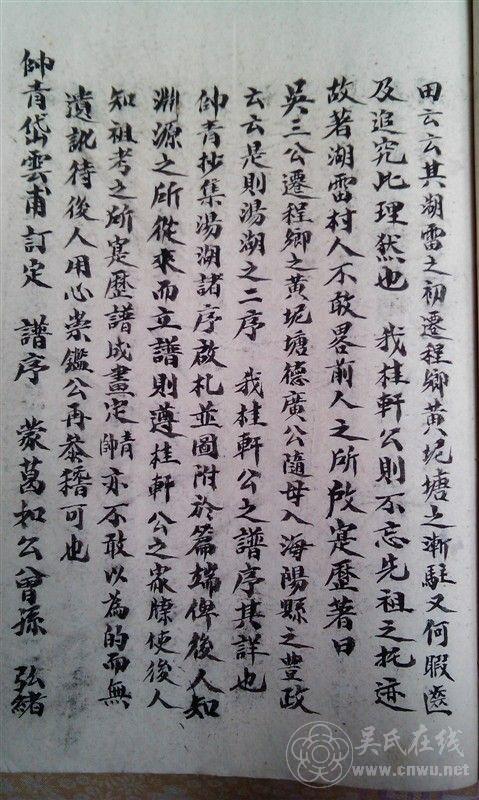 田云云其湖雷之初遷程鄉黃坭塘之漸駐又何暇遽
及追究比理然也 我桂軒公則不忘先祖之托迹
故著湖雷村人不敢畧前人之所啟寔歷著曰
吳三公遷程鄉之黃坭塘德廣公隨母入海陽縣之豐政
云云是則湯湖之二序 我桂軒公之譜序其詳也
帥青抄集湯湖諸序啟札並圖附於篇端俾後人知
淵源之所從來而立譜則遵桂軒公之家牒使後人
知祖考之所寔歷譜成畫定帥青亦不敢以為的而無
遺訛待後人用心崇鑑公再叅稽可也
帥青岱雲甫訂定 譜序 蒙葛和公曾孫 弘緒
吴氏在线
www.cnwu.net